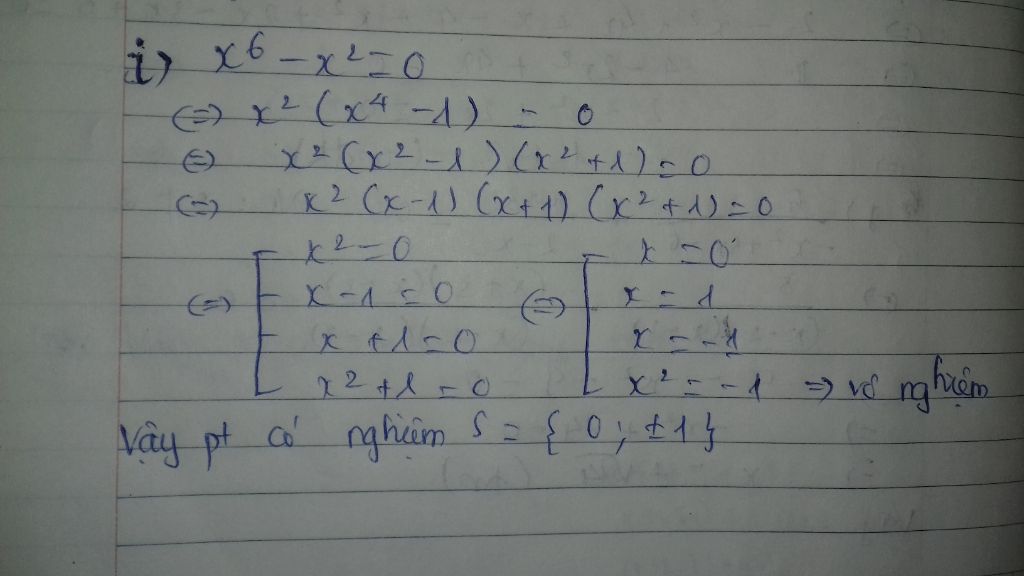 i) x⁶ - x² = 0
(=) x² (x⁴ - 1) = 0
(=) x² (x² - 1) (x² + 1) = 0
(=) x² (x - 1) (x + 1) (x² + 1) = 0
(=) [ x² = 0 (=) [ x = 0
x - 1 = 0 x = 1
x + 1 = 0 x = -1
x² + 1 = 0 x² = -1 => vô nghiệm
Vậy pt có nghiệm S = { 0 ; ±1 }